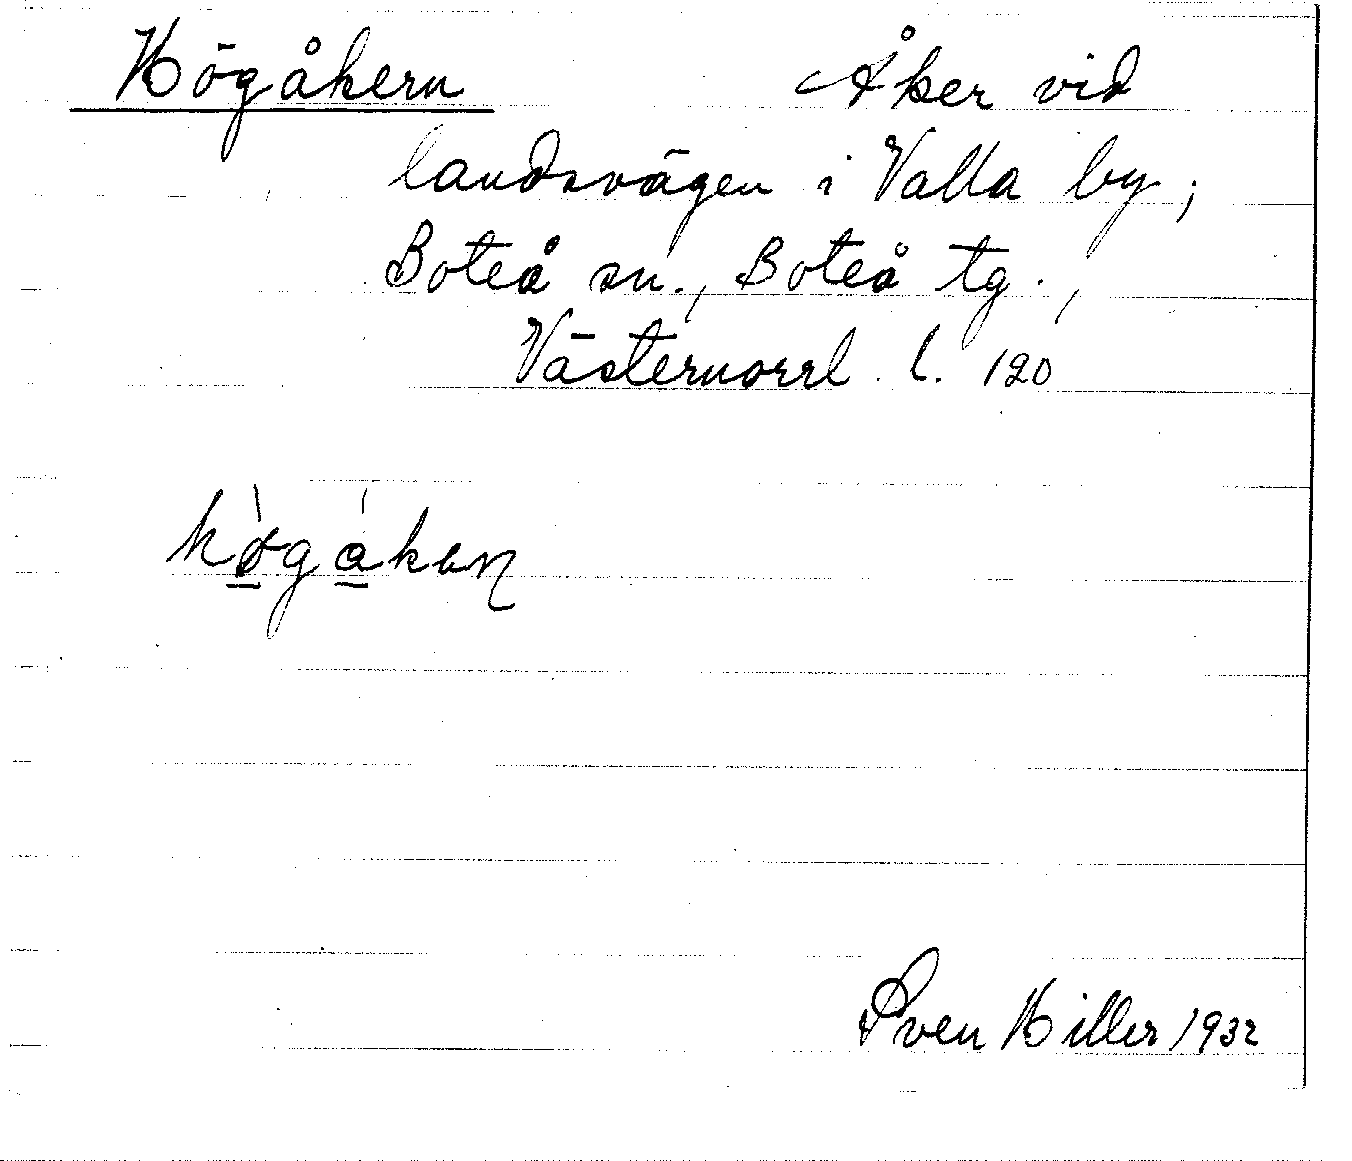 Högåkern Åker vid
landsvägen i Valla by,
Boteå sn., Boteå tg.,
Västernorrl. l. 120
Sven Hiller 1932